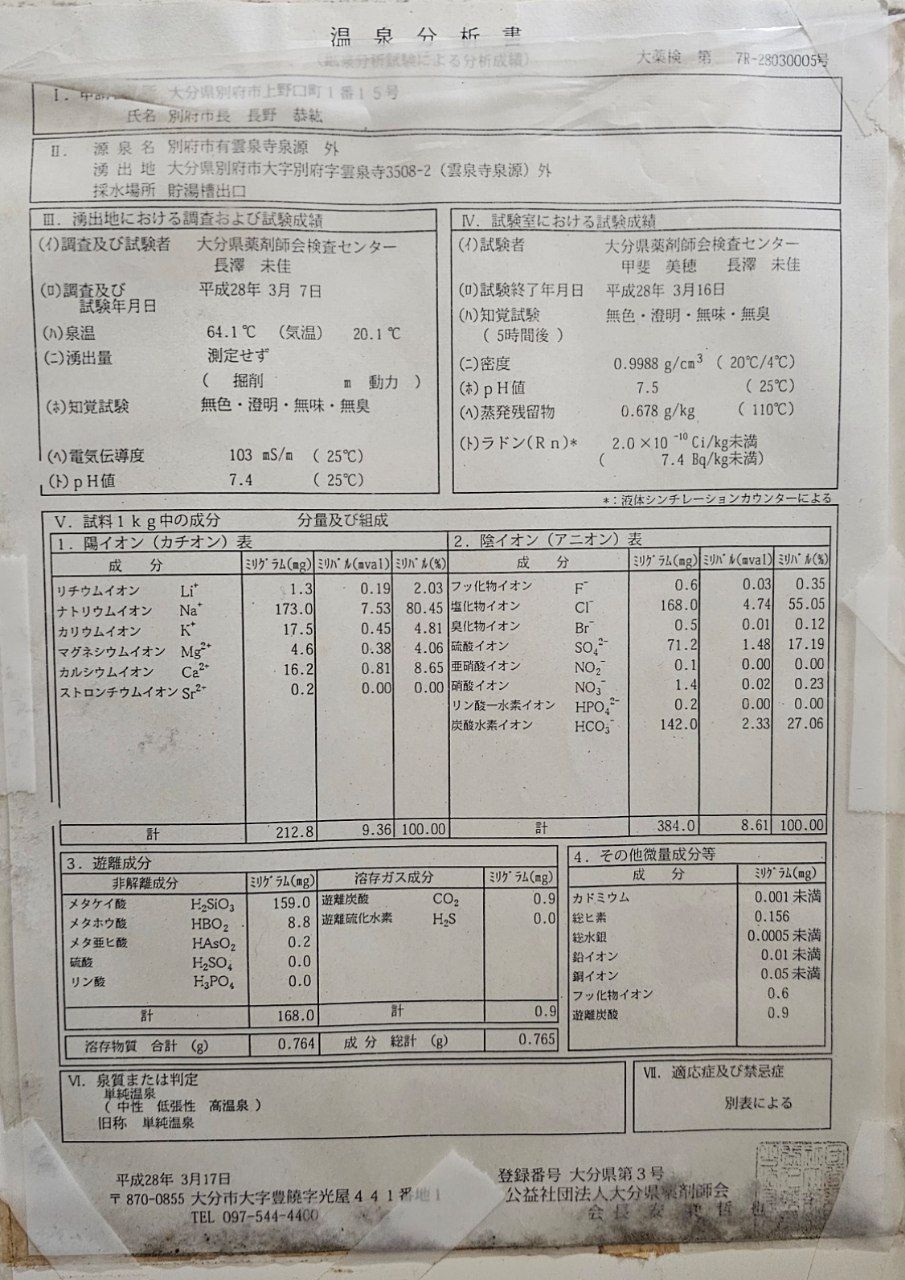 温泉分析書
(鉱泉分析試験による分析成績)
大薬検 第 7R-28030005号
Ⅰ．申請者 住所 大分県別府市上野口町1番15号
氏名 別府市長 長野 恭紘
Ⅱ． 源泉名 別府市有雲泉寺泉源 外
湧出地 大分県別府市大字別府字雲泉寺3508-2（雲泉寺泉源）外
採水場所 貯湯槽出口
Ⅲ．湧出地における調査および試験成績
(ｲ)調査及び試験者 大分県薬剤師会検査センター
長澤 未佳
(ﾛ)調査及び 平成28年 3月 7日
試験年月日
(ﾊ)泉温 64.1℃ （気温） 20.1℃
(ﾆ)湧出量 測定せず
（ 掘削 m 動力 ）
(ﾎ)知覚試験 無色・澄明・無味・無臭
(ﾍ)電気伝導度 103 mS/m （25℃）
(ﾄ)pH値 7.4 （25℃）
Ⅳ．試験室における試験成績
(ｲ)試験者 大分県薬剤師会検査センター
甲斐 美穂 長澤 未佳
(ﾛ)試験終了年月日 平成28年 3月16日
(ﾊ)知覚試験 無色・澄明・無味・無臭
（5時間後）
(ﾆ)密度 0.9988 g/cm³ （20℃/4℃）
(ﾎ)pH値 7.5 （25℃）
(ﾍ)蒸発残留物 0.678 g/kg （110℃）
(ﾄ)ラドン(Rn)* 2.0×10⁻¹⁰ Ci/kg未満
( 7.4 Bq/kg未満)
*：液体シンチレーションカウンターによる
Ⅴ．試料1kg中の成分 分量及び組成
1．陽イオン（カチオン）表
成 分 ﾐﾘｸﾞﾗﾑ(mg) ﾐﾘﾊﾞﾙ(mval) ﾐﾘﾊﾞﾙ(%)
リチウムイオン Li⁺ 1.3 0.19 2.03
ナトリウムイオン Na⁺ 173.0 7.53 80.45
カリウムイオン K⁺ 17.5 0.45 4.81
マグネシウムイオン Mg²⁺ 4.6 0.38 4.06
カルシウムイオン Ca²⁺ 16.2 0.81 8.65
ストロンチウムイオン Sr²⁺ 0.2 0.00 0.00
計 212.8 9.36 100.00
2．陰イオン（アニオン）表
成 分 ﾐﾘｸﾞﾗﾑ(mg) ﾐﾘﾊﾞﾙ(mval) ﾐﾘﾊﾞﾙ(%)
フッ化物イオン F⁻ 0.6 0.03 0.35
塩化物イオン Cl⁻ 168.0 4.74 55.05
臭化物イオン Br⁻ 0.5 0.01 0.12
硫酸イオン SO₄²⁻ 71.2 1.48 17.19
亜硝酸イオン NO₂⁻ 0.1 0.00 0.00
硝酸イオン NO₃⁻ 1.4 0.02 0.23
リン酸一水素イオン HPO₄²⁻ 0.2 0.00 0.00
炭酸水素イオン HCO₃⁻ 142.0 2.33 27.06
計 384.0 8.61 100.00
3．遊離成分
非解離成分 ﾐﾘｸﾞﾗﾑ(mg)
メタケイ酸 H₂SiO₃ 159.0
メタホウ酸 HBO₂ 8.8
メタ亜ヒ酸 HAsO₂ 0.2
硫酸 H₂SO₄ 0.0
リン酸 H₃PO₄ 0.0
計 168.0
溶存ガス成分 ﾐﾘｸﾞﾗﾑ(mg)
遊離炭酸 CO₂ 0.9
遊離硫化水素 H₂S 0.0
計 0.9
溶存物質 合計 (g) 0.764 成分 総計 (g) 0.765
4．その他微量成分等
成 分 ﾐﾘｸﾞﾗﾑ(mg)
カドミウム 0.001 未満
総ヒ素 0.156
総水銀 0.0005 未満
鉛イオン 0.01 未満
銅イオン 0.05 未満
フッ化物イオン 0.6
遊離炭酸 0.9
Ⅵ．泉質または判定
単純温泉
（中性 低張性 高温泉）
旧称 単純温泉
Ⅶ．適応症及び禁忌症
別表による
平成28年 3月17日
〒870-0855 大分市大字豊饒字光屋441番地1
TEL 097-544-4400
登録番号 大分県第3号
公益社団法人大分県薬剤師会
会長 安東 哲也